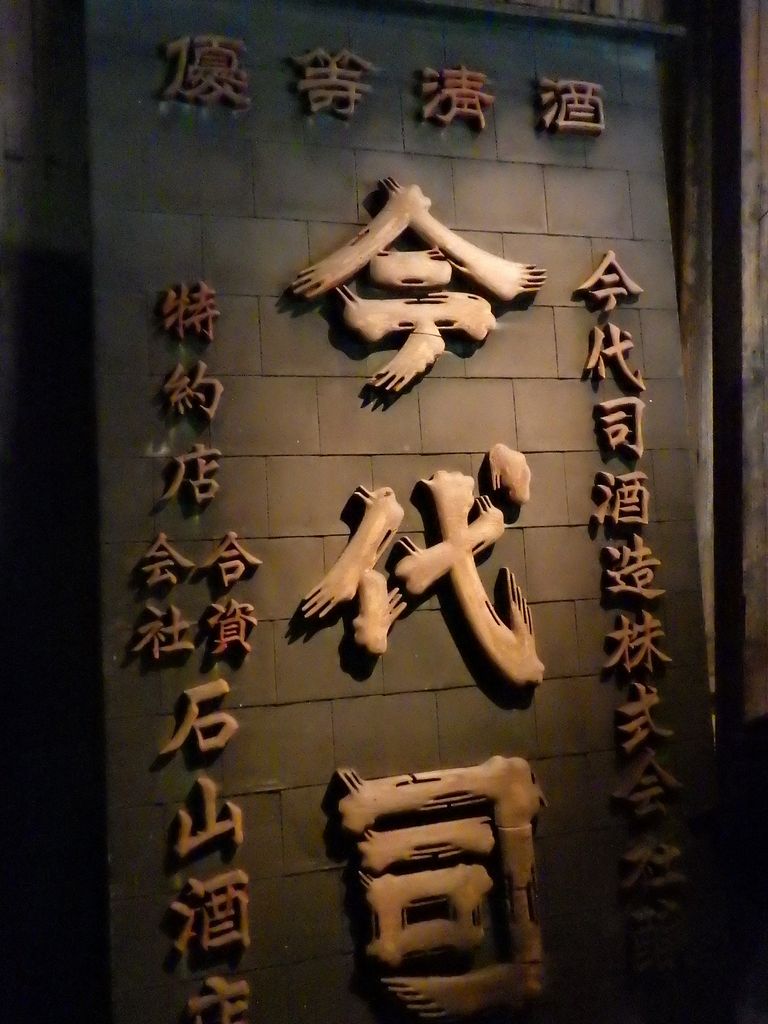 優等清酒
今代司
今代司酒造株式会社
特約店
合資
会社
石山酒店